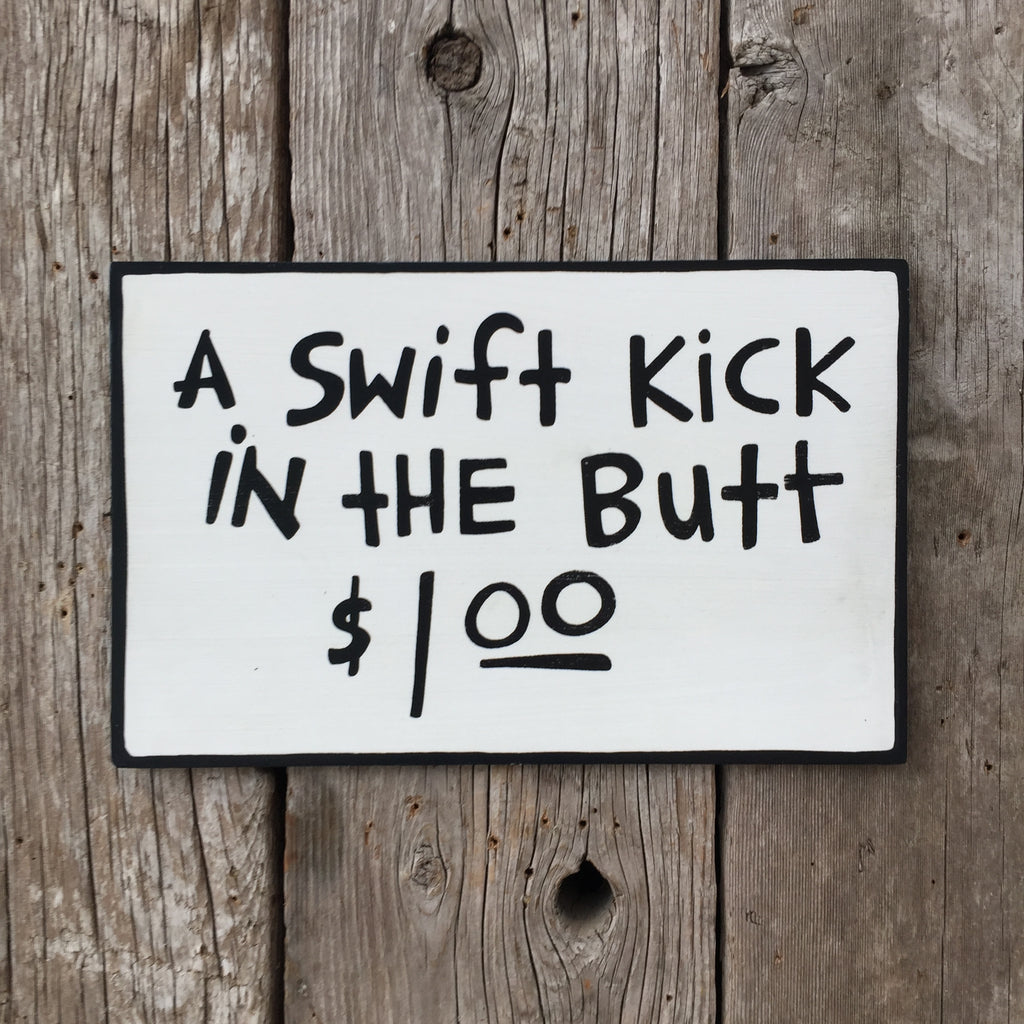 A Swift Kick
in the Butt
$1.00